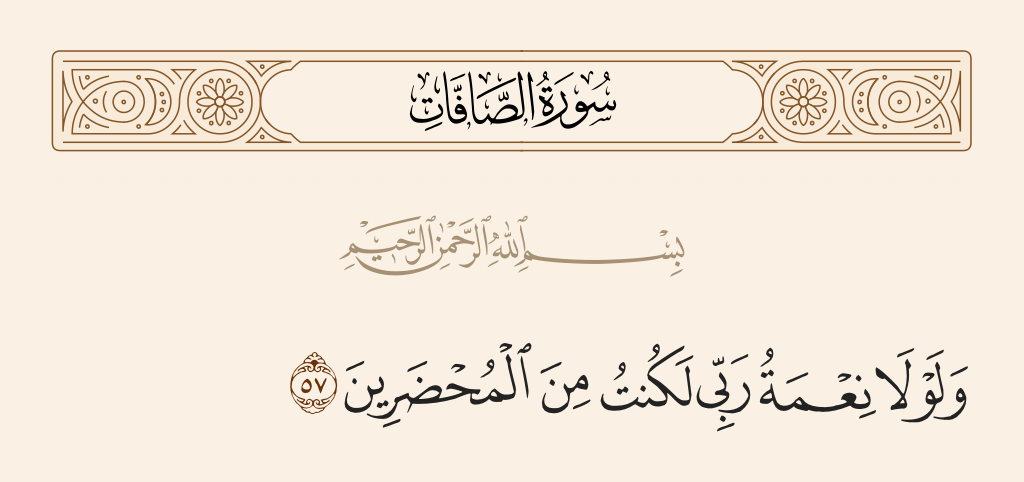 سُورَةُ الصَّافَّاتِ
بِسْمِ ٱللَّهِ ٱلرَّحْمَٰنِ ٱلرَّحِيمِ
وَلَوْلَا نِعْمَةُ رَبِّى لَكُنتُ مِنَ ٱلْمُحْضَرِينَ ٥٧